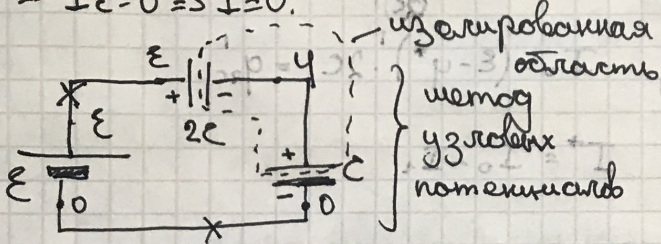 IC-0=> I=0.
изолированная
область
метод
узловых
потенциалов
ε
φ
+
-
2C
ε
ε
+
C
-
0
0